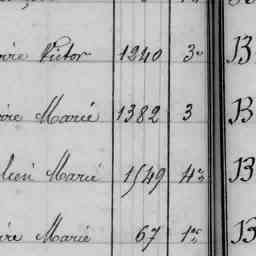 oire Victor 1240 3e B
oire Marié 1382 3 B
Marié 1549 4e B
oire Marié 67 1er B